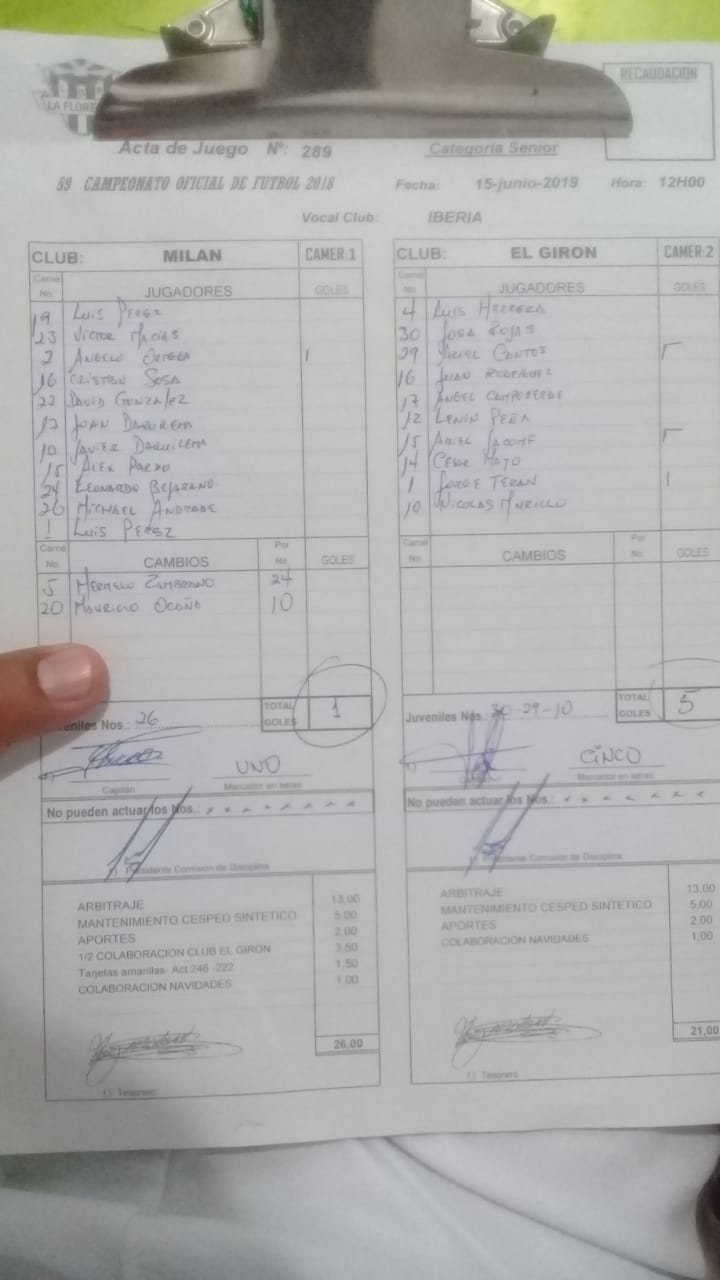 LA FLORE
RECAUDACION
Acta de Juego Nº: 289
Categoria Senior
59 CAMPEONATO OFICIAL DE FUTBOL 2018
Fecha: 15-junio-2019 Hora: 12H00
Vocal Club: IBERIA
CLUB: MILAN CAMER:1
Carné No. JUGADORES GOLES
19 LUIS PEREZ
23 VICTOR MACIAS
2 ANGELO ORTEGA 1
16 CRISTIAN SOSA
22 DAVID GONZALEZ
17 JUAN DAQUILEMA
10 JAVIER DAQUILEMA
15 ALEX PARDO
24 LEONARDO BEJARANO
26 MICHAEL ANDRADE
1 LUIS PEREZ
Carné No. CAMBIOS Por No. GOLES
5 ZAMBRANO 24
20 10
TOTAL GOLES 1
eniles Nos.: 26
UNO
Capitán Marcador en letras
No pueden actuar los Nos.: x x x x x x x x
f.) Presidente Comisión de Disciplina
ARBITRAJE 13,00
MANTENIMIENTO CESPED SINTETICO 5,00
APORTES 2,00
1/2 COLABORACION CLUB EL GIRON 3,50
Tarjetas amarillas- Act 246 -222 1,50
COLABORACION NAVIDADES 1,00
26,00
f.) Tesorero
CLUB: EL GIRON CAMER:2
Carné No. JUGADORES GOLES
4 LUIS HERRERA
30 JOSA ROJAS
29 ARIEL
16 JUAN RODRIGUEZ
17 ANGEL CAMPOVERDE
12 LENIN PEÑA
15 ARIEL JACOME
14 CESAR MAYO
1 JORGE TERAN 1
10 NICOLAS MURILLO
Carné No. CAMBIOS Por No. GOLES
TOTAL GOLES 5
Juveniles Nos.: 30-29-10
CINCO
Marcador en letras
No pueden actuar los Nos.: x x x x x x x
f.) Presidente Comisión de Disciplina
ARBITRAJE 13,00
MANTENIMIENTO CESPED SINTETICO 5,00
APORTES 2,00
COLABORACION NAVIDADES 1,00
21,00
f.) Tesorero